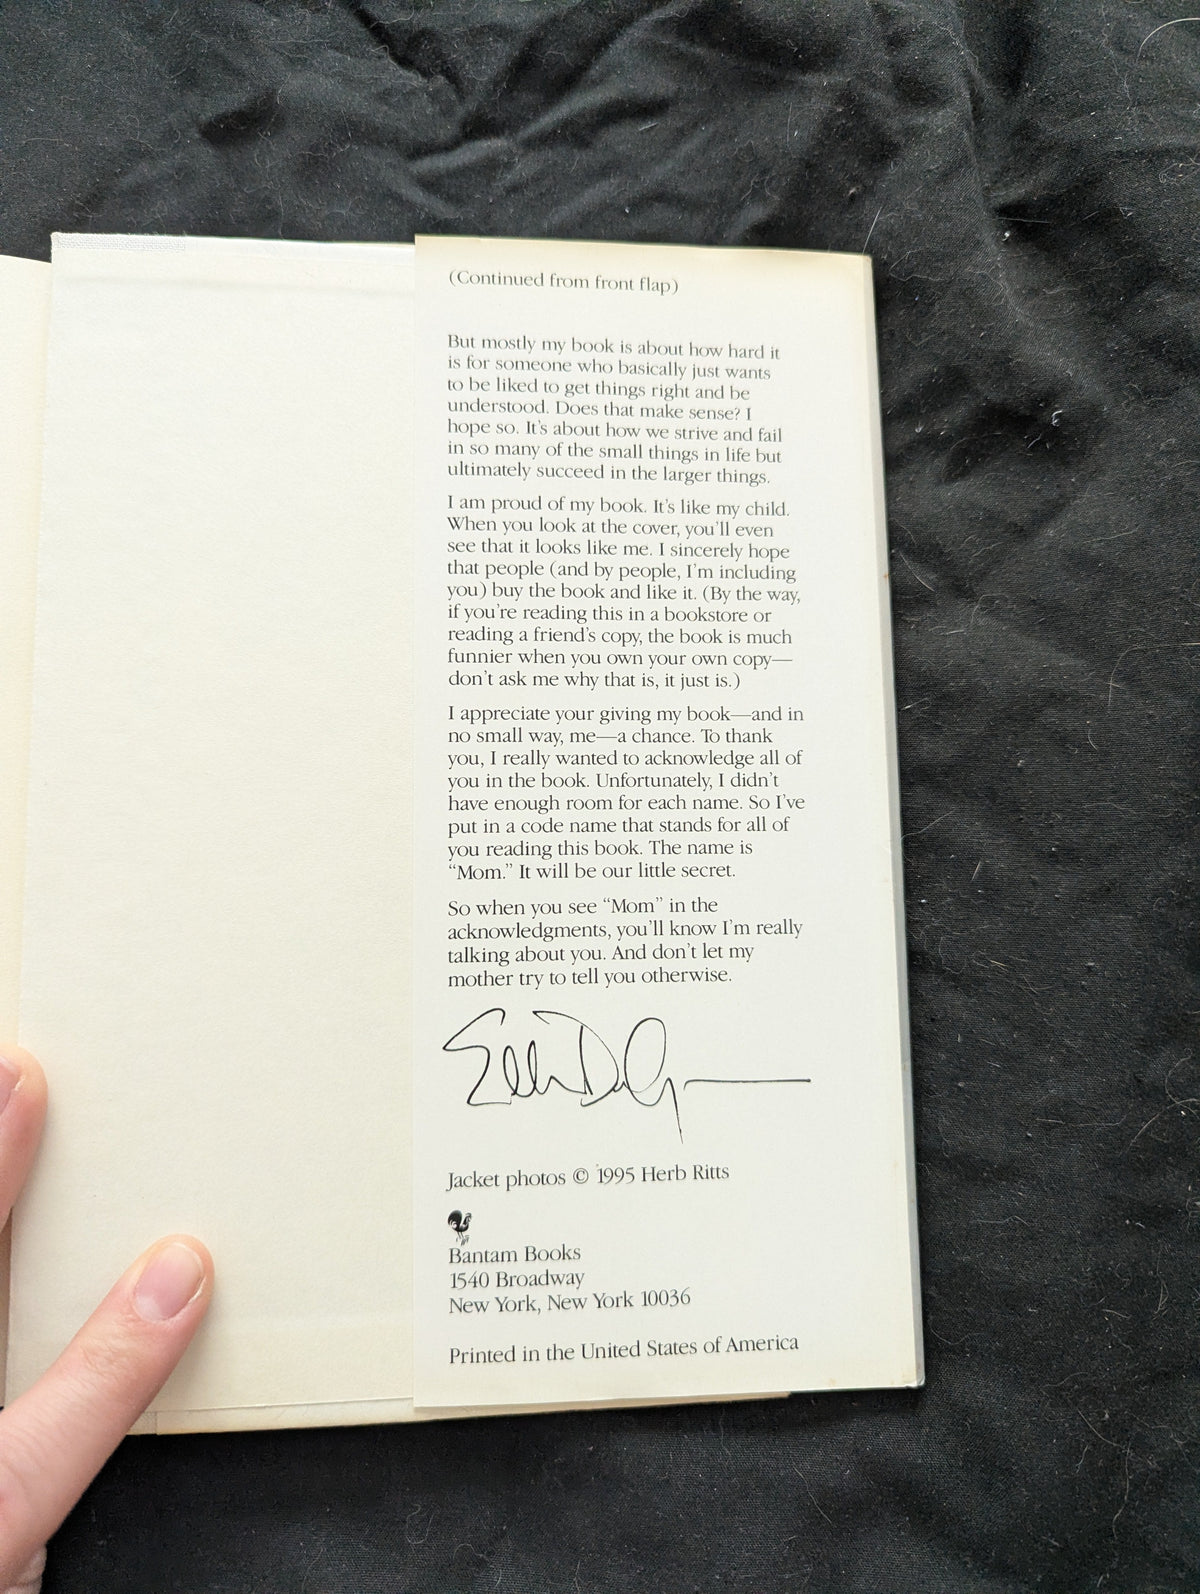 (Continued from front flap)
But mostly my book is about how hard it
is for someone who basically just wants
to be liked to get things right and be
understood. Does that make sense? I
hope so. It's about how we strive and fail
in so many of the small things in life but
ultimately succeed in the larger things.
I am proud of my book. It's like my child.
When you look at the cover, you'll even
see that it looks like me. I sincerely hope
that people (and by people, I'm including
you) buy the book and like it. (By the way,
if you're reading this in a bookstore or
reading a friend's copy, the book is much
funnier when you own your own copy—
don't ask me why that is, it just is.)
I appreciate your giving my book—and in
no small way, me—a chance. To thank
you, I really wanted to acknowledge all of
you in the book. Unfortunately, I didn't
have enough room for each name. So I've
put in a code name that stands for all of
you reading this book. The name is
“Mom.” It will be our little secret.
So when you see “Mom” in the
acknowledgments, you'll know I'm really
talking about you. And don't let my
mother try to tell you otherwise.
Jacket photos © 1995 Herb Ritts
Bantam Books
1540 Broadway
New York, New York 10036
Printed in the United States of America